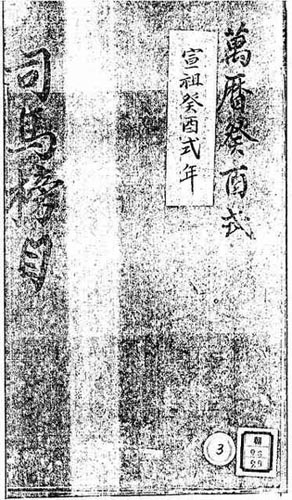 萬曆癸酉式
宣祖癸酉式年
司馬榜目
3
朝